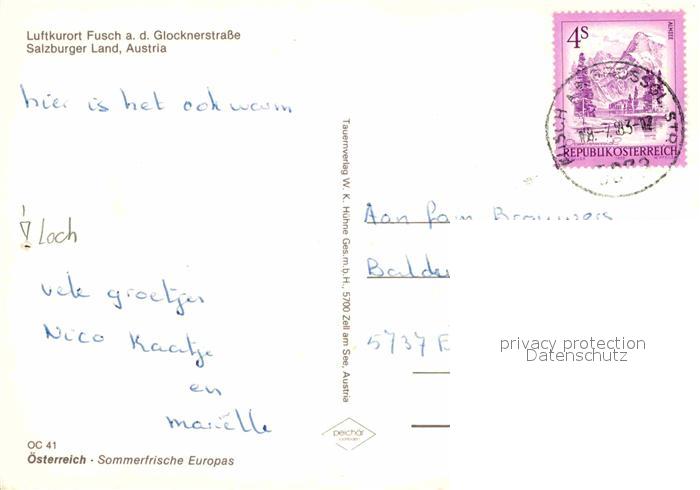 Luftkurort Fusch a. d. Glocknerstraße
Salzburger Land, Austria
hier is het ook warm
! Loch
vele groetjes
Nico Kaatje
en
mariëlle
OC 41
Österreich · Sommerfrische Europas
Tauernverlag W. K. Hühne Ges.m.b.H., 5700 Zell am See, Austria
peichär
4S
ALMSEE
REPUBLIK ÖSTERREICH
Aan fam
Balde
5737 E
privacy protection
Datenschutz